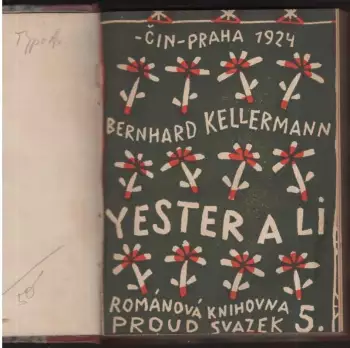 -ČIN-PRAHA 1924
BERNHARD KELLERMANN
YESTER A LI
ROMÁNOVÁ KNIHOVNA
PROUD SVAZEK 5.